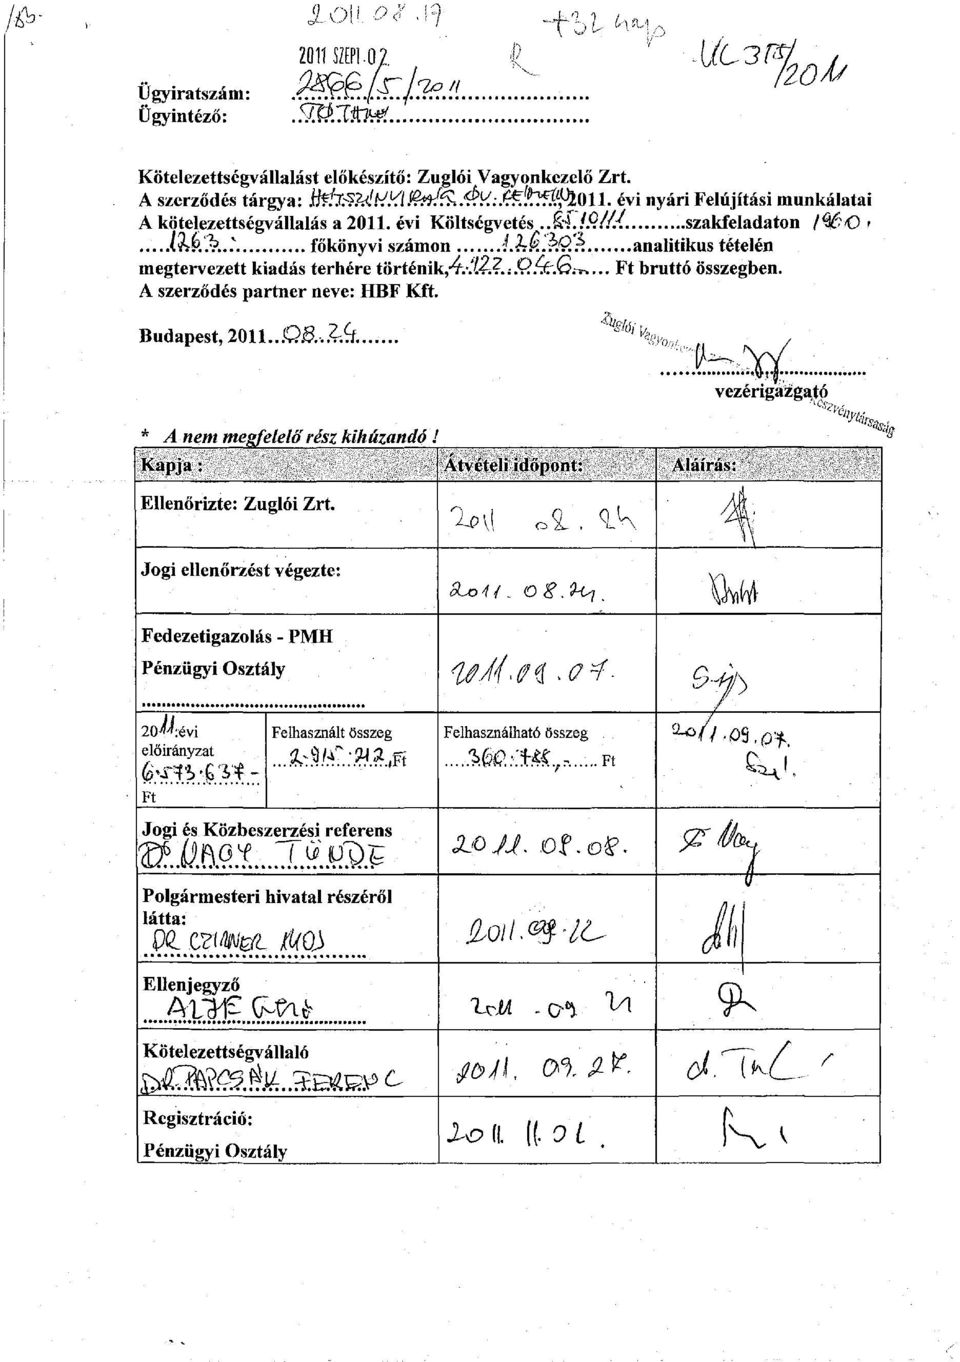 2011.08.19
+32 nap
2011 SZEPT.02.
R
Ügyiratszám: 2866/5/2011
Ügyintéző:
Kötelezettségvállalást előkészítő: Zuglói Vagyonkezelő Zrt.
A szerződés tárgya: 2011. évi nyári Felújítási munkálatai
A kötelezettségvállalás a 2011. évi Költségvetés szakfeladaton
főkönyvi számon 12.6.303 analitikus tételén
megtervezett kiadás terhére történik, 4.122.046.- Ft bruttó összegben.
A szerződés partner neve: HBF Kft.
Budapest, 2011..08.24.
Zuglói
vezérigazgató
* A nem megfelelő rész kihúzandó !
Kapja : Átvételi időpont: Aláírás:
Ellenőrizte: Zuglói Zrt. 2011 08.24
Jogi ellenőrzést végezte: 2011.08.24.
Fedezetigazolás - PMH
Pénzügyi Osztály 2011.09.07.
2011.évi Felhasznált összeg Felhasználható összeg 2011.09.07.
előirányzat 2.915.212,Ft 360.788,- Ft
6.573.637-
Ft
Jogi és Közbeszerzési referens
DR NAGY TÜNDE 2011.09.08.
Polgármesteri hivatal részéről
látta:
DR CZINNER 2011.09.12
Ellenjegyző
2011.09 21
Kötelezettségvállaló
DR.PAPCSÁK FERENC 2011.09.27.
Regisztráció:
Pénzügyi Osztály 2011.11.01.